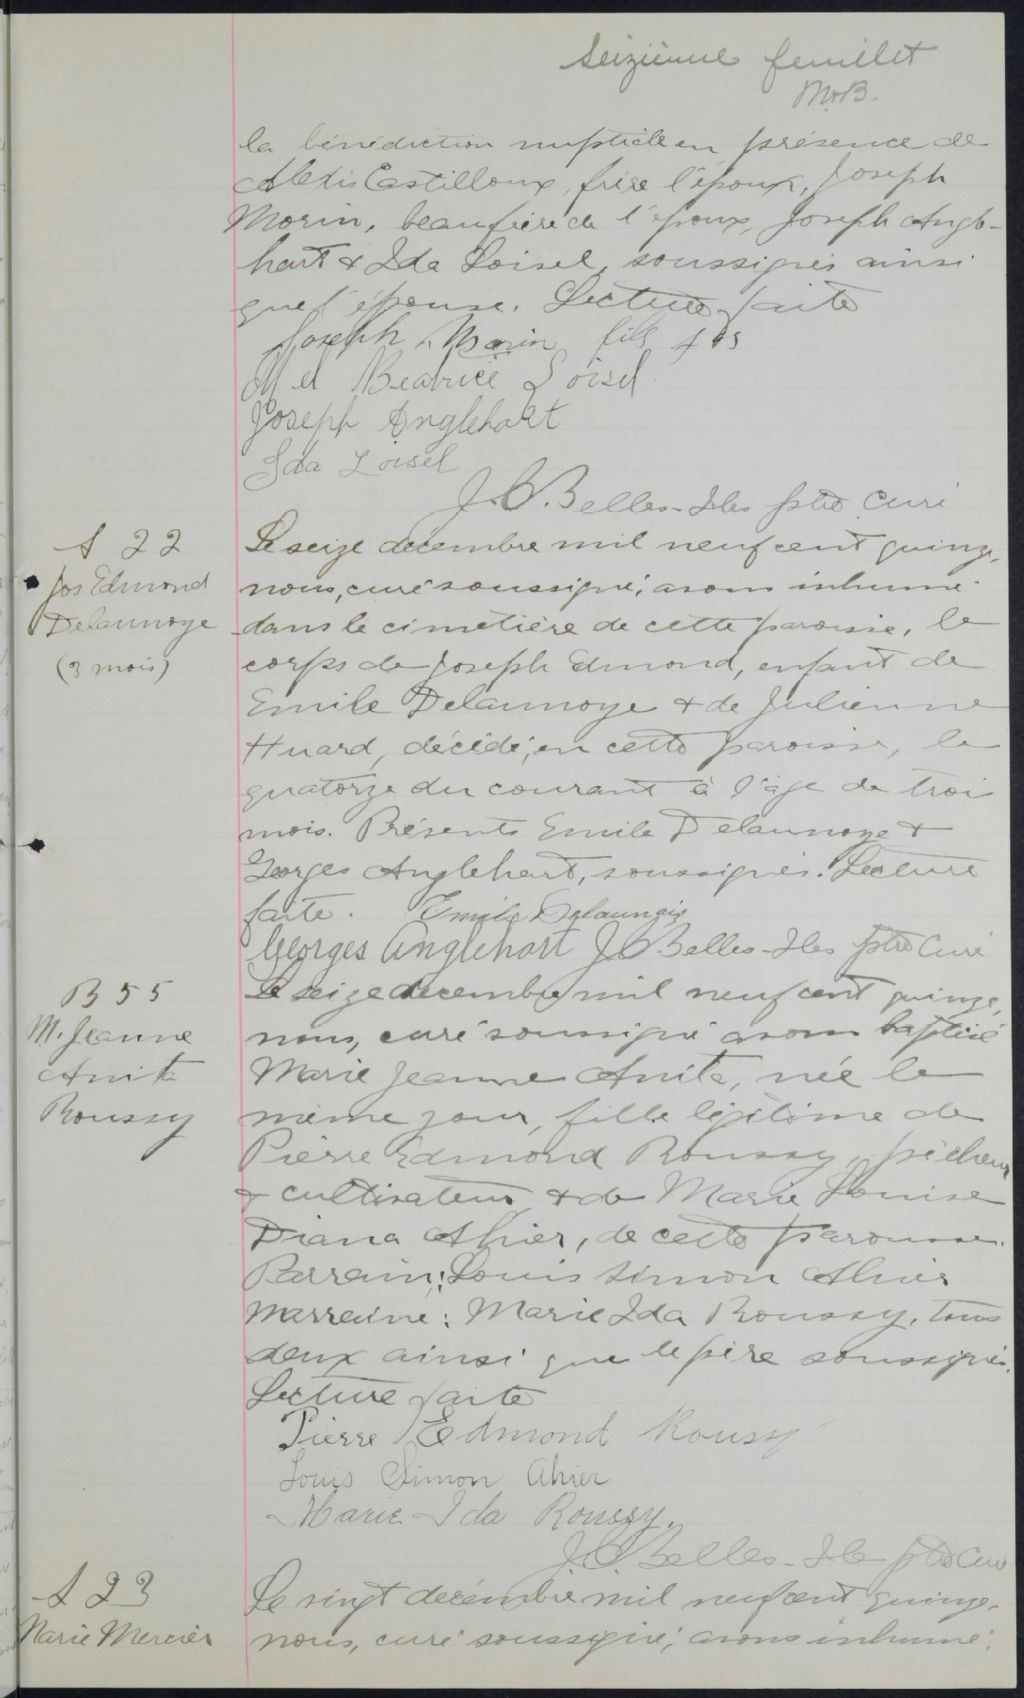 Seizième feuillet
M.B.
la bénédiction nuptiale en présence de
Alexis Castilloux, frère l'époux, Joseph
Morin, beaufrère de l'époux, Joseph Angle-
hart & Ida Loisel, soussignés ainsi
que l'épouse. Lecture faite
Joseph Morin fils
Beatrice Loisel
Joseph Anglehart
Ida Loisel
J.O. Belles-Iles ptre Curé
S 22
Jos Edmond
Delaunoye
(3 mois)
Le seize décembre mil neuf cent quinze,
nous, curé soussigné, avons inhumé
dans le cimetière de cette paroisse, le
corps de Joseph Edmond, enfant de
Emile Delaunoye & de Julienne
Huard, décédé, en cette paroisse, le
quatorze du courant à l'âge de trois
mois. Présents Emile Delaunoye &
Georges Anglehart, soussignés. Lecture
faite. Emile Delaunois
Georges Anglehart J.O. Belles-Iles ptre Curé
B 55
M. Jeanne
Anita
Roussy
Le seize décembre mil neuf cent quinze,
nous, curé soussigné avons baptisé
Marie Jeanne Anita, née le
même jour, fille légitime de
Pierre Edmond Roussy, pêcheur
& cultivateur & de Marie Louise
Diana Ahier, de cette paroisse.
Parrain: Louis Simon Ahier
Marraine: Marie Ida Roussy, tous
deux ainsi que le père soussignés.
Lecture faite
Pierre Edmond Roussy
Louis Simon Ahier
Marie-Ida Roussy.
J.O. Belles-Iles ptre Curé
S 23
Marie Mercier
Le vingt décembre mil neuf cent quinze,
nous, curé soussigné, avons inhumé